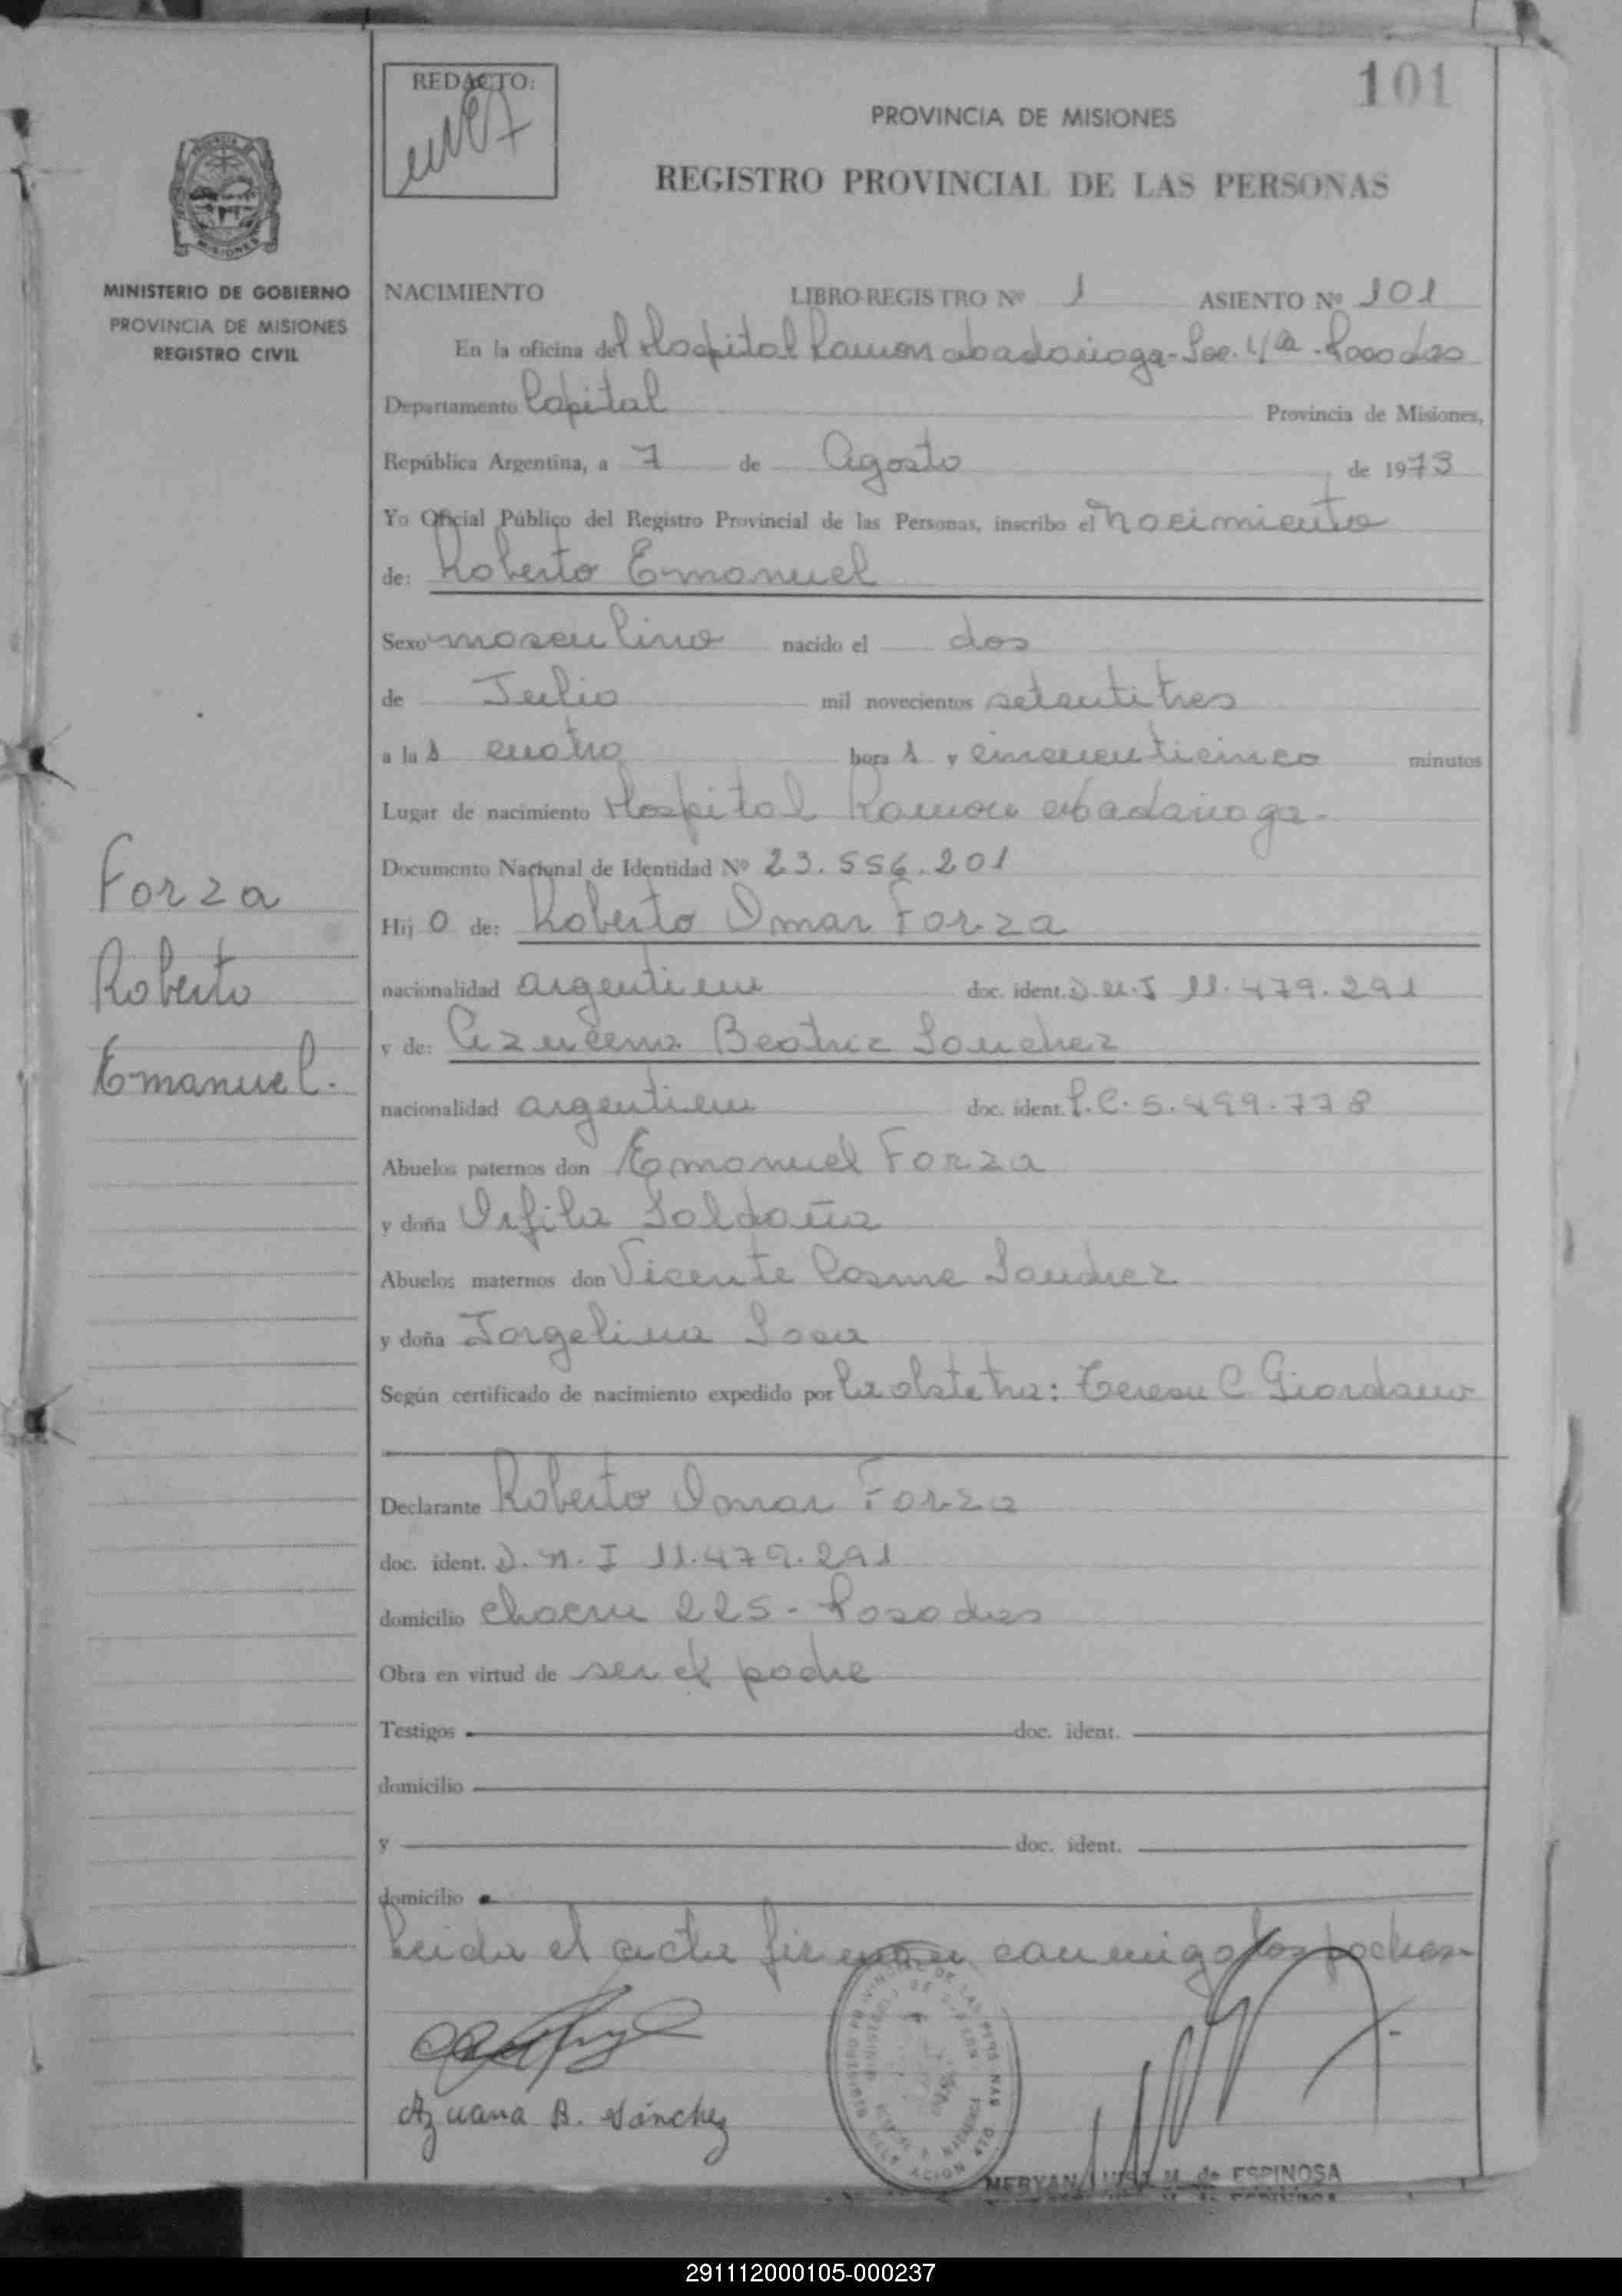 101
REDACTO:
PROVINCIA DE MISIONES
REGISTRO PROVINCIAL DE LAS PERSONAS
MINISTERIO DE GOBIERNO
PROVINCIA DE MISIONES
REGISTRO CIVIL
NACIMIENTO LIBRO REGISTRO Nº 1 ASIENTO Nº 101
En la oficina del Hospital Ramon Madariaga - Sec. 4ta - Posadas
Departamento Capital Provincia de Misiones,
República Argentina, a 7 de Agosto de 1973
Yo Oficial Público del Registro Provincial de las Personas, inscribo el Nacimiento
de: Roberto Emanuel
Sexo masculino nacido el dos
de Julio mil novecientos setentitres
a las cuatro horas y cincuenticinco minutos
Lugar de nacimiento Hospital Ramon Madariaga-
Documento Nacional de Identidad Nº 23.556.201
Hijo de: Roberto Omar Forza
nacionalidad argentina doc. ident. D.N.I 11.479.291
y de: Azucena Beatriz Sanchez
nacionalidad argentina doc. ident. L.C. 5.499.778
Abuelos paternos don Emanuel Forza
y doña Orfila Saldaña
Abuelos maternos don Vicente Cosme Sanchez
y doña Jorgelina Sosa
Según certificado de nacimiento expedido por la obstetra: Teresa C. Giordano
Declarante Roberto Omar Forza
doc. ident. D.N.I 11.479.291
domicilio Chacra 225 - Posadas
Obra en virtud de ser el padre
Testigos doc. ident.
domicilio
y doc. ident.
domicilio
Leida el acta firman conmigo los padres
Azucena B. Sánchez
de ESPINOSA
Forza
Roberto
Emanuel.
291112000105-000237